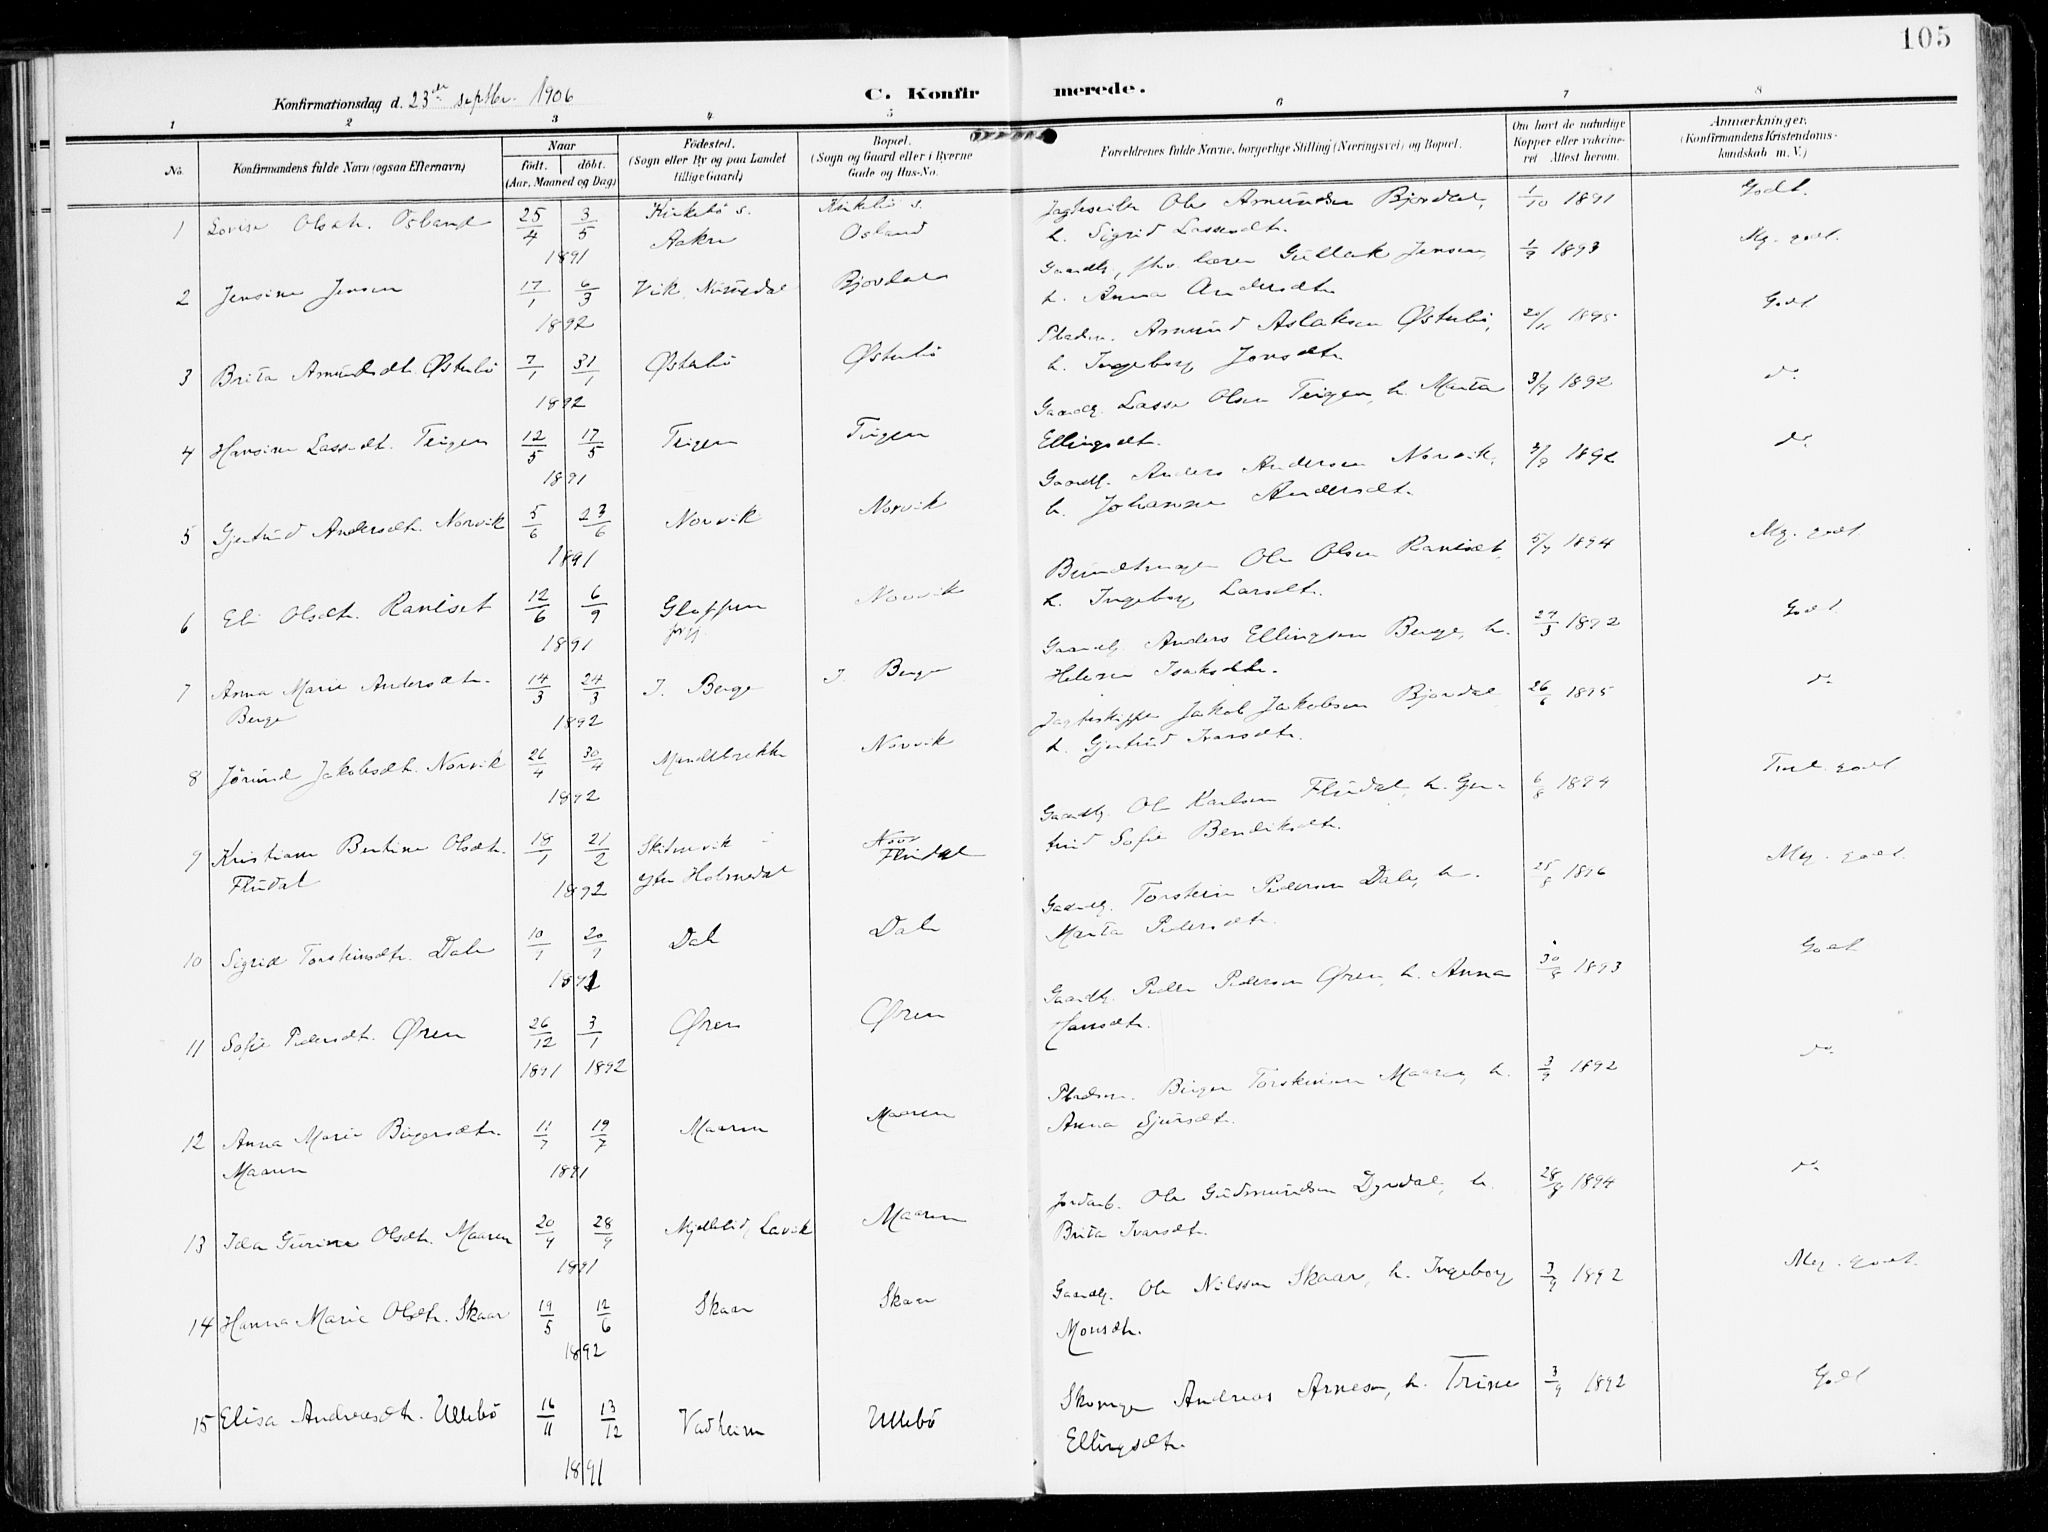 105
Konfirmationsdag d. 23de septbr. 1906
C. Konfirmerede.
1 2 3 4 5 6 7 8
No. Konfirmandens fulde Navn (ogsaa Efternavn) Naar födt. döbt. (Aar, Maaned og Dag) Födested. (Sogn eller By og paa Landet tillige Gaard) Bopæl. (Sogn og Gaard eller i Byerne Gade og Hus-No. Forældrenes fulde Navne, borgerlige Stilling (Næringsvei) og Bopæl. Om havt de naturlige Kopper eller vakcineret Attest herom. Anmærkninger. (Konfirmandens Kristendomskundskab m. V.)
1 Lovise Olsdtr. Osland 25/4 3/5 1891 Kirkebö s. Aakre Kirkebö s. Osland Jagteseiler Ole Asmundsen Bjordal, h. Sigrid Lassesdtr. 1/10 1891 Godt.
2 Jensine Jensen 17/1 6/3 1892 Vik, Nummedal Bjordal Gaardbr., fhv. lærer Gullak Jensen, h. Anna Andersdtr. 1/9 1893 Mg. godt.
3 Brita Asmundsdtr. Østerbö 7/1 31/1 1892 Østerbö Østerbö Pladsm. Asmund Aslaksen Østerbö, h. Ingeborg Jonsdtr. 20/10 1895 Godt
4 Hansine Lassedtr. Teigen 12/5 17/5 1891 Teigen Teigen Gaardbr. Lasse Olsen Teigen, h. Marta Ellingsdtr. 3/9 1892 do
5 Gjertrud Andersdtr. Norvik 5/6 23/6 1891 Norvik Norvik Gaardbr. Anders Andersen Norvik, h. Johanne Andersdtr. 3/9 1892 do
6 Eli Olsdtr. Raniset 12/6 6/9 1891 Gloppen prgj. Norvik Bundtmager Ole Olsen Raniset, h. Ingeborg Larsdtr. 5/7 1894 Mg. godt
7 Anna Marie Andersdtr. Berge 14/3 24/3 1892 I. Berge I. Berge Gaardbr. Anders Ellingsen Berge, h. Helene Isaksdtr. 27/3 1892 Godt.
8 Jörund Jakobsdtr. Norvik 26/4 30/4 1892 Myrdebrekke Norvik Jagteskipper Jakob Jakobsen Bjordal, h. Gjertrud Ivarsdtr. 26/6 1895 do
9 Kristiane Bertine Olsdtr. Fludal 18/1 21/2 1892 Skitnevik Ytre Holmedal Fludal Gaardbr. Ole Karlsen Fludal, h. Gjertrud Sofie Bendiksdtr. 6/8 1894 Tml. godt
10 Sigrid Torsteinsdtr. Dale 10/1 20/1 1891 Dale Dale Gaardbr. Torstein Pedersen Dale, h. Marta Pedersdtr. 25/8 1896 Mg. godt.
11 Sofie Pedersdtr. Øren 26/12 1891 3/1 1892 Øren Øren Gaardbr. Peder Pedersen Øren, h. Anna Hansdtr. 30/8 1893 Godt
12 Anna Marie Birgersdtr. Maaren 11/7 19/7 1891 Maaren Maaren Pladsm. Birger Torsteinsen Maaren, h. Anna Sjursdtr. 3/9 1892 do
13 Ida Gurine Olsdtr. Maaren 20/9 28/9 1891 Mjellelid, Lavik Maaren Jordarb. Ole Gudmundsen Dyrdal, h. Brita Ivarsdtr. 28/8 1894 do
14 Hanna Marie Olsdtr. Skaar 19/5 12/6 1892 Skaar Skaar Gaardbr. Ole Nilssen Skaar, h. Ingeborg Monsdtr. 3/9 1892 Meg. godt.
15 Elisa Andreasdtr. Ullebö 16/11 13/12 1891 Vadheim Ullebö Skomager Andreas Arnesen, h. Trine Ellingsdtr. 3/9 1892 Godt